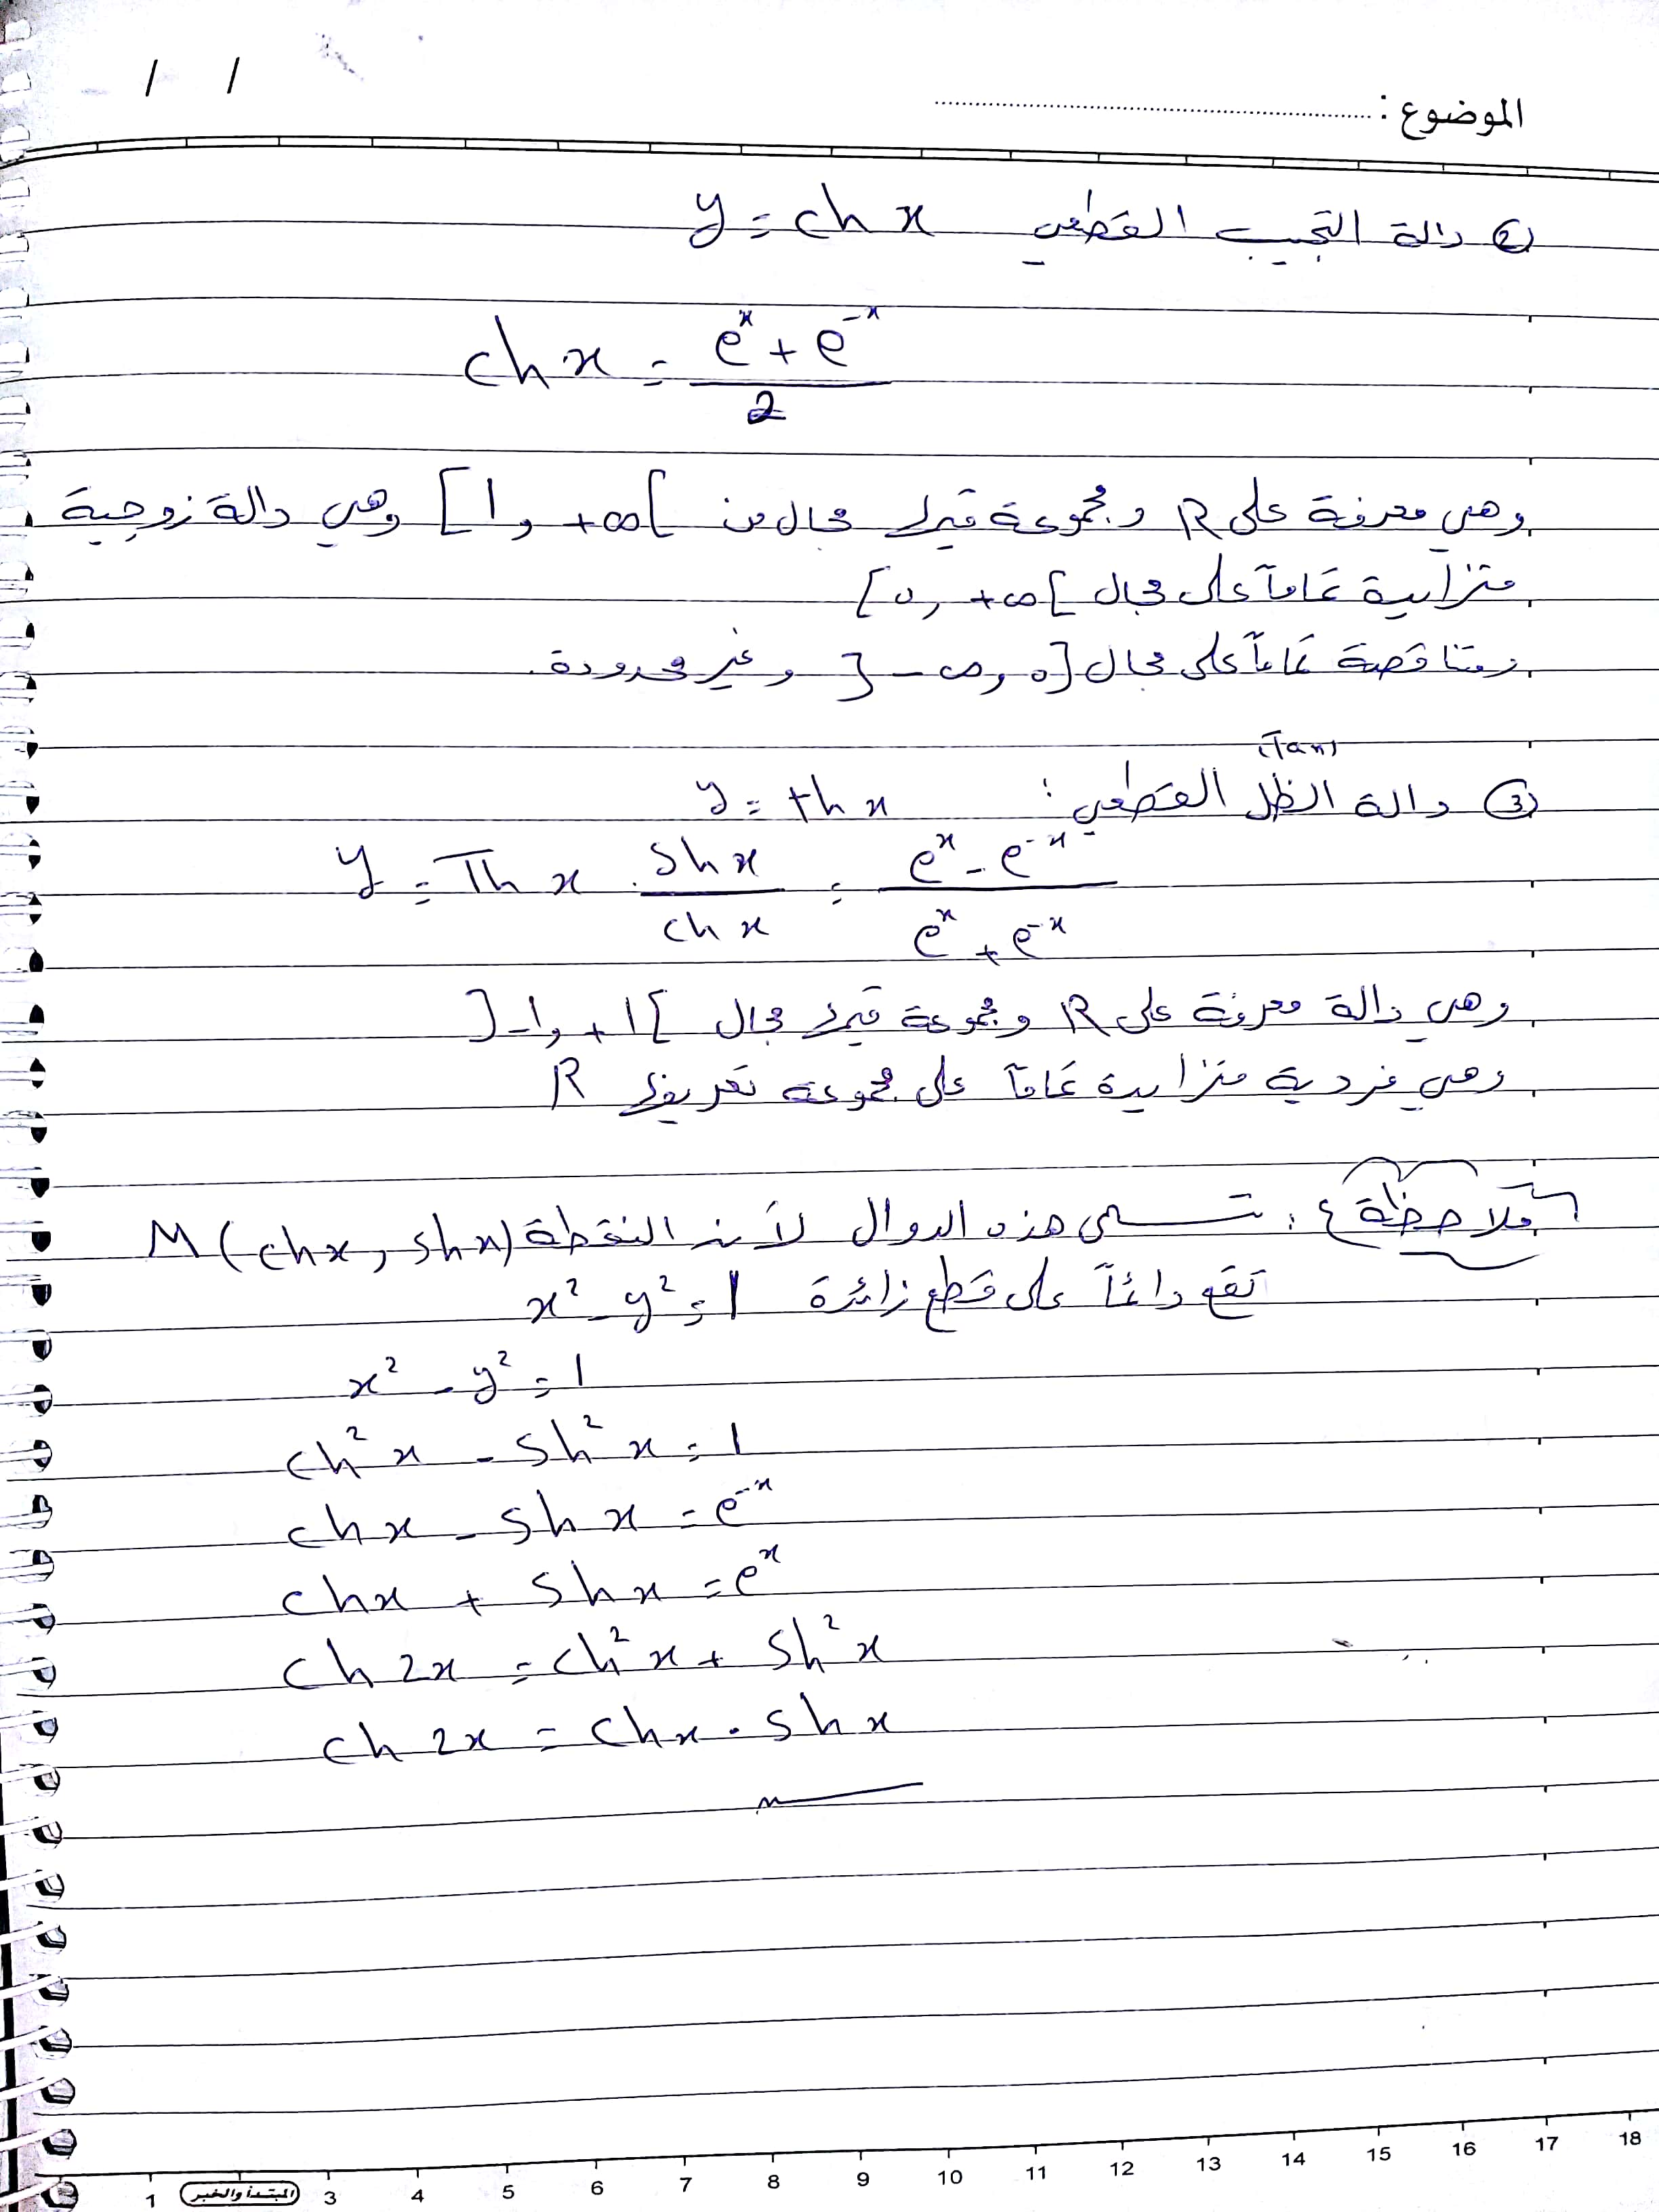 / /
الموضوع :
② دالة التجيب القطعي y = ch x
ch x = (e^x + e^-x) / 2
وهي معرفة على R ومجموعة قيمها مجال من [1 , +∞[ وهي دالة زوجية
متزايدة تماماً على مجال [0 , +∞[
ومتناقصة تماماً على مجال ]-∞ , 0] وغير محدودة.
(Tan)
③ دالة الظل القطعي : y = th x
y = Th x = sh x / ch x = (e^x - e^-x) / (e^x + e^-x)
وهي دالة معرفة على R ومجموعة قيمها مجال ]-1 , +1[
وهي فردية متزايدة تماماً على مجموعة تعريفها R
ملاحظة : تسمى هذه الدوال لأن النقطة M(chx , shx)
تقع دائماً على قطع زائدة x² - y² = 1
x² - y² = 1
ch²x - sh²x = 1
chx - shx = e^-x
chx + shx = e^x
ch 2x = ch²x + sh²x
ch 2x = chx . shx
1 المبتدأ والخبر 3 4 5 6 7 8 9 10 11 12 13 14 15 16 17 18